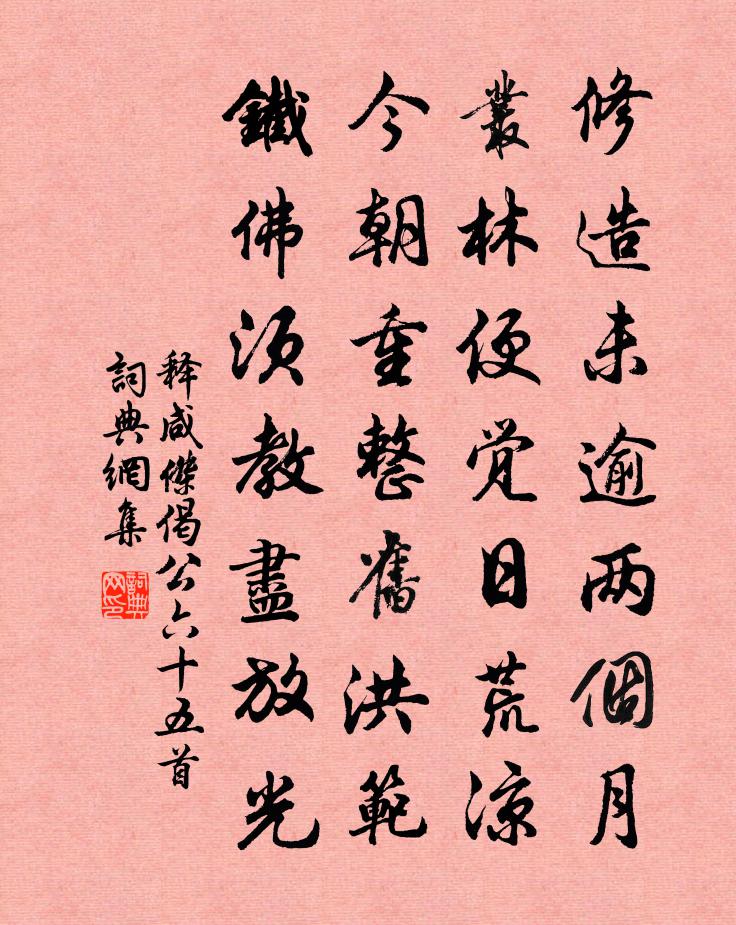 修造未逾两個月
叢林便覚日荒凉
今朝重整舊洪範
鐵佛須教盡放光
释咸傑偈公六十五首
詞典網集
詞典网印